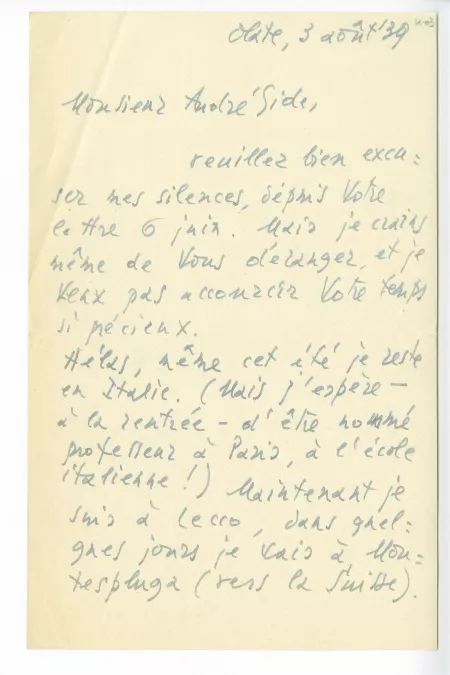 Olate, 3 août '39
Monsieur André Gide,
veuillez bien excu=
ser mes silences, dépuis Votre
lettre 6 juin. Mais je crains
même de Vous déranger, et je
veux pas accourcir Votre temps
si précieux.
Hélas, même cet été je reste
en Italie. (Mais j'espère —
à la rentrée — d'être nommé
professeur à Paris, à l'école
italienne!) Maintenant je
suis à Lecco, dans quel=
ques jours je vais à Mon=
tespluga (vers la Suisse).